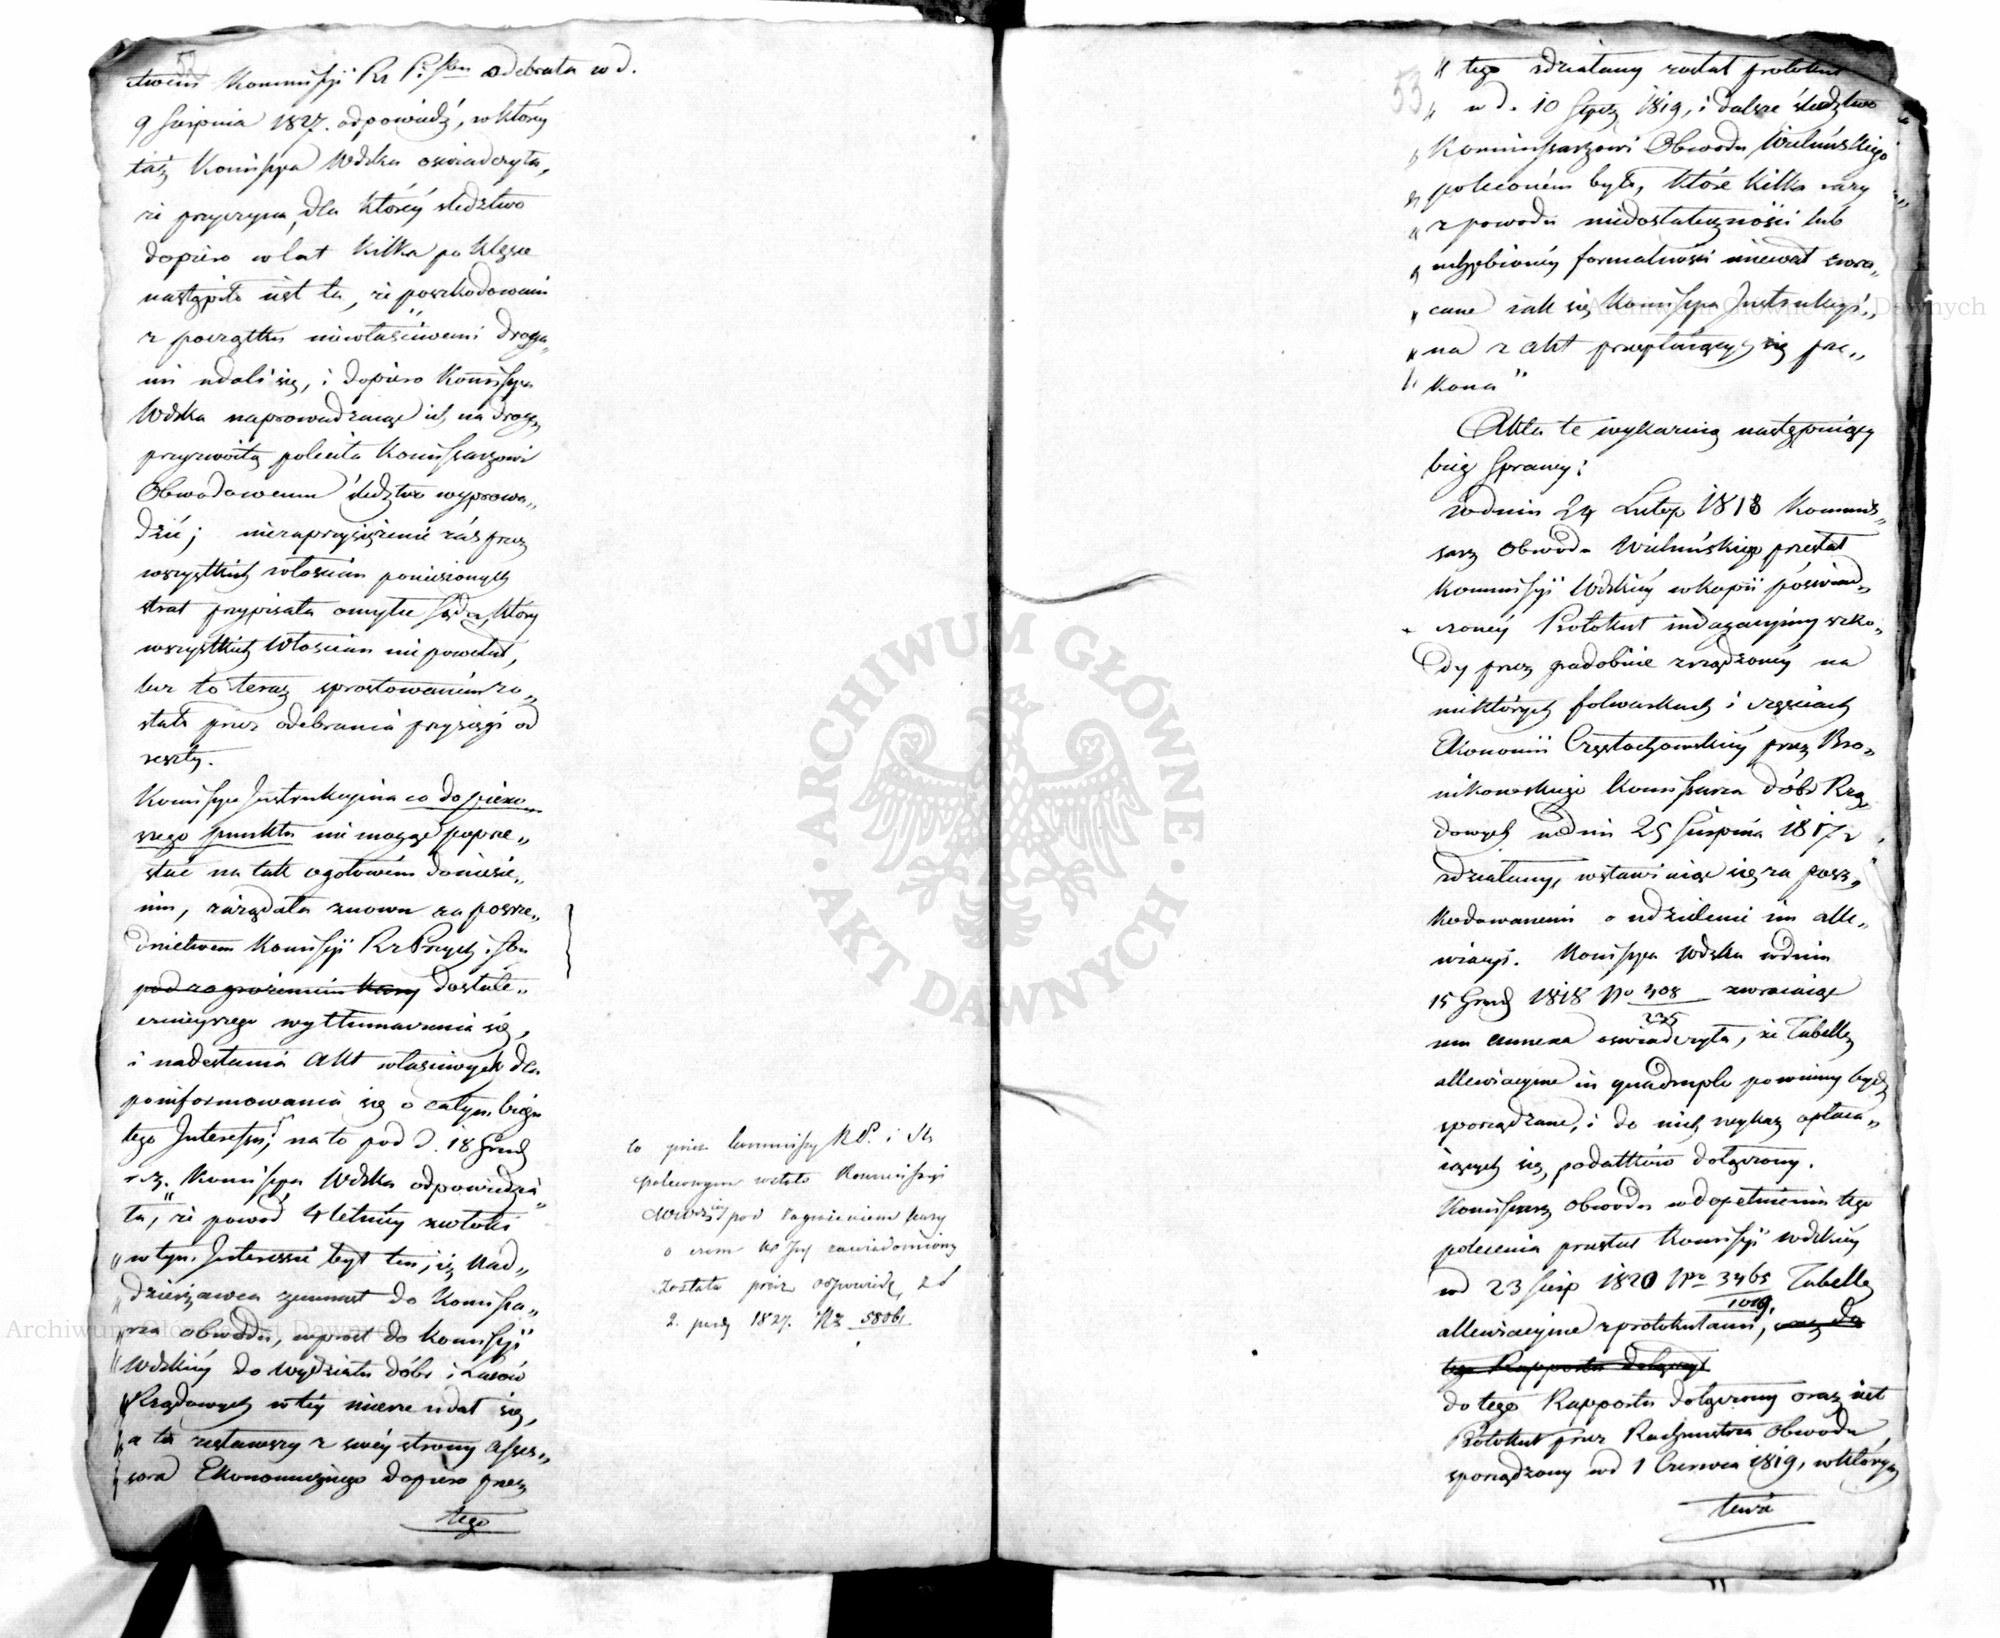 52
ctwem Kommissyi Rz P. i Sbu odebrała w d.
9 Sierpnia 1827. odpowiedź, w którey
taż Komissya Wdzka oświadczyła,
że przyczyna, dla którey śledztwo
dopiero w lat kilka po klęsce
nastąpiło iest ta, że poszkodowani
z początku niewłaściwemi droga„
mi udali się, i dopiero Komissya
Wdzka naprowadzaiąc ich na drogę
przyzwoitą poleciła Komissarzowi
Obwodowemu śledztwo wyprowa„
dzić; niezaprzysiężenie zaś przez
wszystkich włościan poniesionych
strat przypisała omyłce Sądu, który
wszystkich Włościan nie powołał,
lecz to teraz sprostowaném zo„
stało przez odebranie przysięgi od
reszty.
Komissya Instrukcyina co do pierw
szego punktu nie mogąc poprze„
stać na tak ogołowém doniesie„
niu, zażądała znowu za pośre„
dnictwem Komissyi Rz Przych i Sbu
pod zagrożeniem kary dostate„
cznieyszego wytłumaczenia się,
i nadesłania Akt właściwych dla
poinformowania się o całym biegu
tego Interessu; na to pod d. 18 Grud
r. z. Komissya Wdzka odpowiedzia„
ła, że powód 4 letniey zwłoki
„ w tym Interessie był ten, iż Nad„
„ dzierżawca zamiast do Komissa„
„ rza obwodu, wprost do Komissyi
„ Wdzkiey do wydziału dóbr i Lasów
„ Rządowych w tey mierze udał się,
„ a ta zesławszy z swéy strony Asses„
„ sora Ekonomicznego dopiero przez
tego
to przez Kommissyą R.P. i Sk
poleconym zostało Kommissyi
Wdzkiey pod zagrożeniem kary
o czem Ks Ins zawiadomioną
została przez odpowiedź z d
2. paźdź 1827. Nr 58061
53
„ tego zdziałany został protokuł
„ w d. 10 Stycz 1819, i dalsze śledztwo
„ Kommissarzowi Obwodu Wieluńskiego
„ poleconém było, które kilka razy
„ z powodu niedostateczności lub
„ uchybioney formalności niewał zwra„
„ cane iak się Komissya Instrukcyi„
„ na z akt przepłaiących się prze„
„ kona"
Akta te wykazuią następuiący
bieg Sprawy:
w dniu 24 Lutego 1818 Kommis„
sarz Obwodu Wieluńskiego przesłał
Kommissyi Wdzkiey w kopii poświad„
czoney Protokuł indagacyiny szko„
dy przez gradobicie zrządzoney na
niektórych folwarkach i częściach
Ekonomii Częstochowskiey przez Bro„
nikowskiego Komissarza dóbr Rzą
dowych w dniu 25 Sierpnia 1817 r
zdziałany, wstawiaiąc się za posz„
kodowanemi o udzielenie im alle„
wiacyi. Komissya Wdzka w dniu
15 Grud 1818 No 408/235 zwracaiąc
mu annexa oświadczyła, że Tabelle
allewiacyine in quadruplo powinny bydź
sporządzone, i do nich wykaz opłaca„
iących się podatków dołączony.
Komissarz obwodu w dopełnieniu tego
polecenia przesłał Komissyi Wdzkiey
pod 23 Sierp 1820 No 3465/1019. Tabelle
allewiacyine z protokułami, oraz do
tego Rapportu dołączył
do tego Rapportu dołączony oraz iest
Protokuł przez Rachmistrza Obwodu
sporządzony pod 1 Czerwca 1819, w którym
tenże
ARCHIWUM GŁÓWNE · AKT DAWNYCH ·
Archiwum Główne Akt Dawnych
Archiwum Główne Akt Dawnych